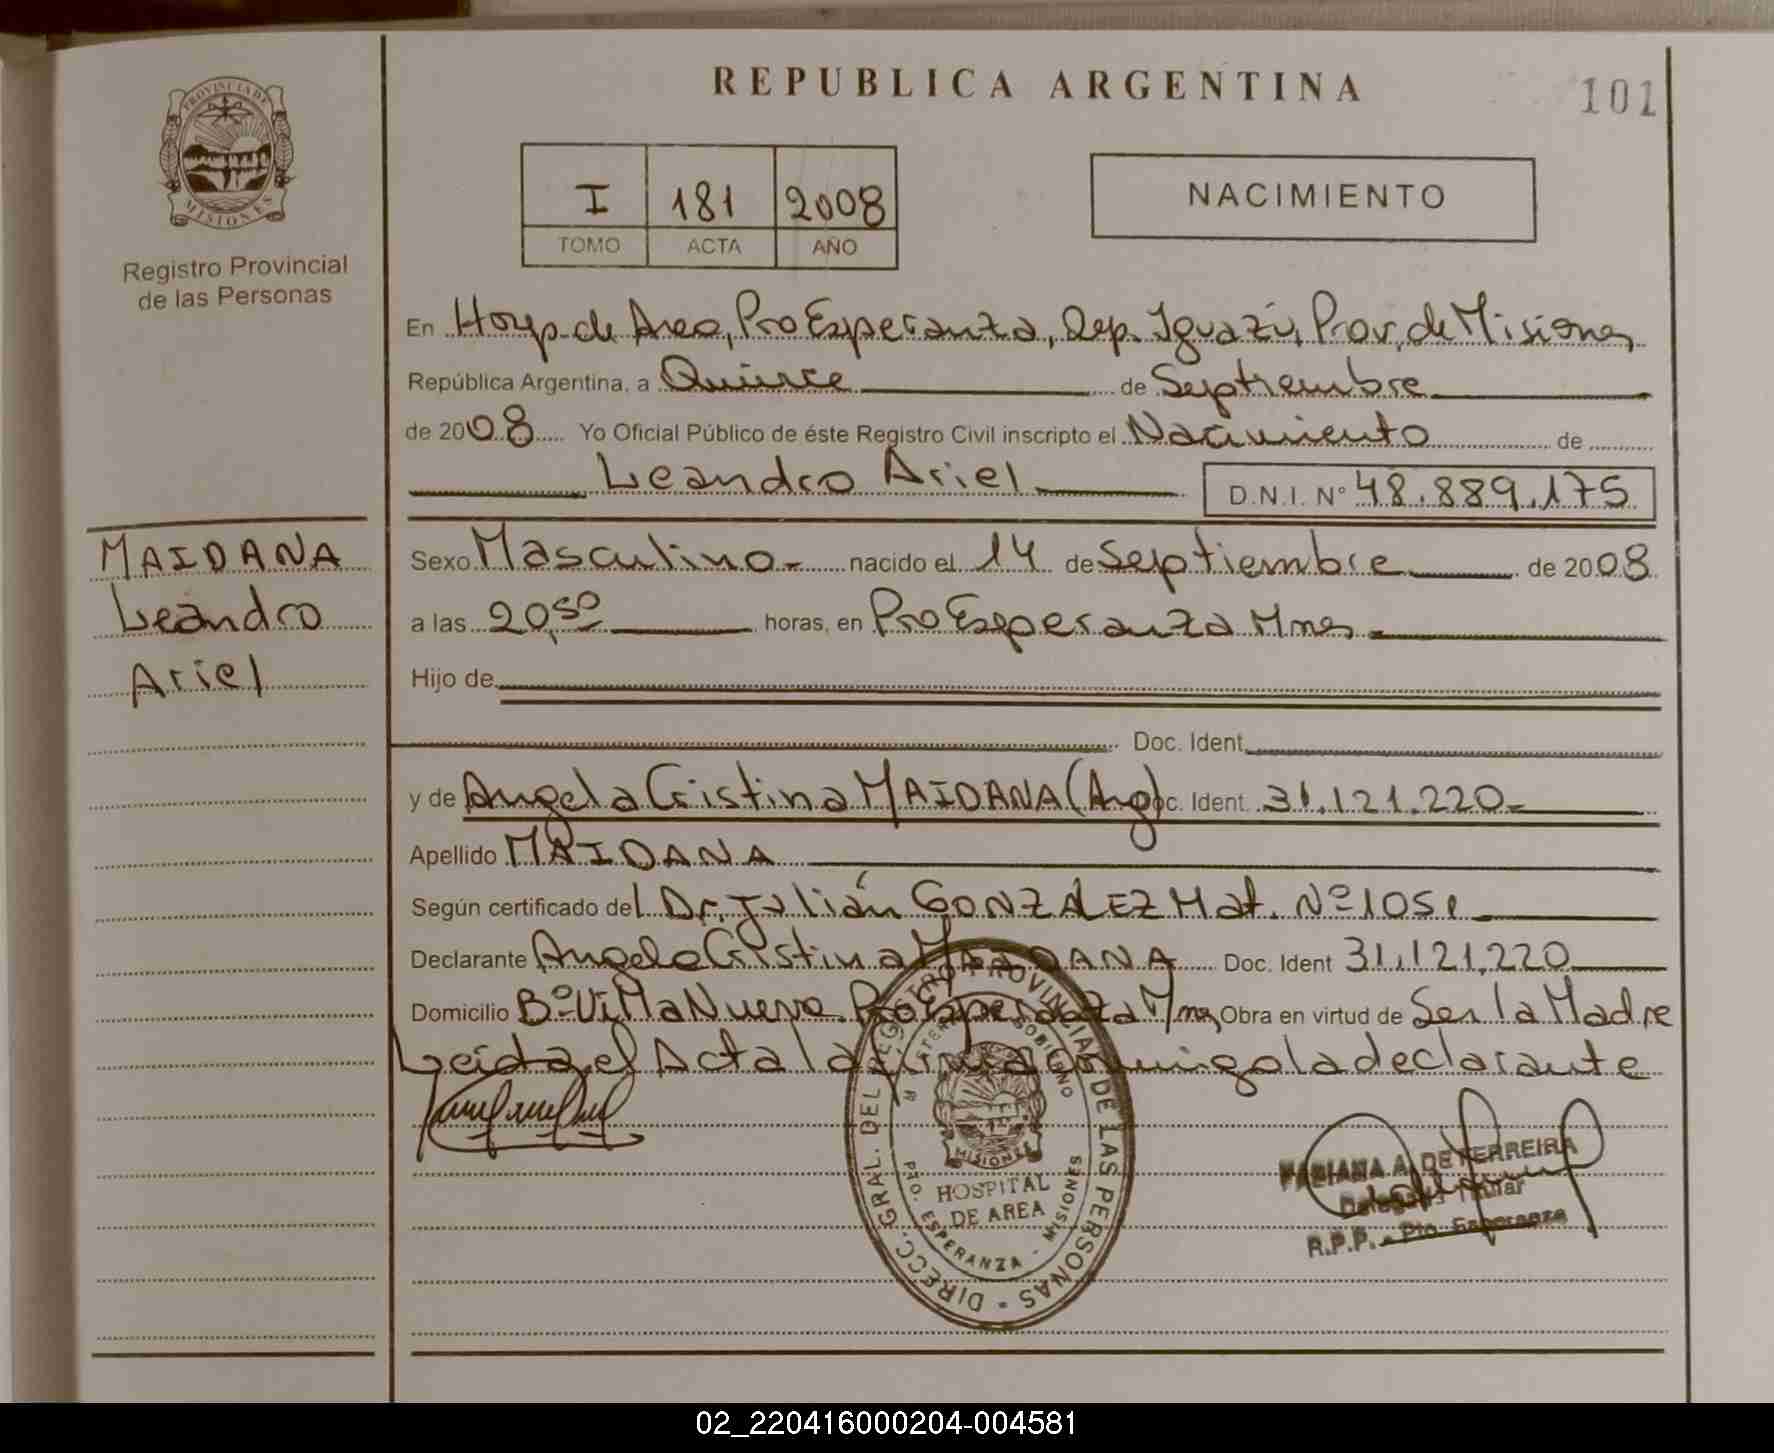 REPUBLICA ARGENTINA
101
PROVINCIA DE
MISIONES
Registro Provincial
de las Personas
I 181 2008
TOMO ACTA AÑO
NACIMIENTO
En Hosp. de Area, Pto Esperanza, Dep. Iguazú, Prov. de Misiones
República Argentina, a Quince de Septiembre
de 2008 Yo Oficial Público de éste Registro Civil inscripto el Nacimiento de
Leandro Ariel D.N.I. Nº 48.889.175
MAIDANA
Leandro
Ariel
Sexo Masculino.- nacido el 14 de Septiembre de 2008
a las 20,50 horas, en Pto Esperanza Mnes.-
Hijo de
Doc. Ident.
y de Angela Cristina MAIDANA (Arg) Doc. Ident. 31.121.220.-
Apellido MAIDANA
Según certificado del Dr. Julián GONZALEZ Mat. Nº 1051
Declarante Angela Cristina MAIDANA Doc. Ident 31.121.220
Domicilio Bº Villa Nueva Pto Esperanza Mnes, Obra en virtud de Ser la Madre
Leida el Acta la firma conmigo la declarante
DIRECC. GRAL. DEL REGISTRO PROVINCIAL DE LAS PERSONAS
GOBIERNO
MISIONES
HOSPITAL
DE AREA
PTO. ESPERANZA - MISIONES
FABIANA A. DE FERREIRA
Delegada Titular
R.P.P. - Pto. Esperanza
02_220416000204-004581